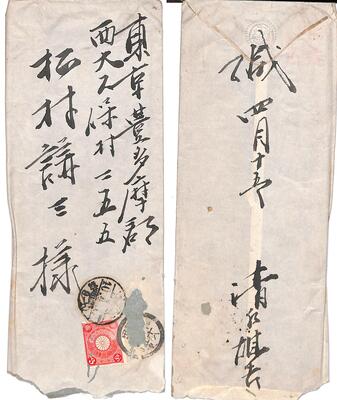 東京豊多摩郡
西大久保村二五五
松村謙三様
緘 四月十五
清水雄吉